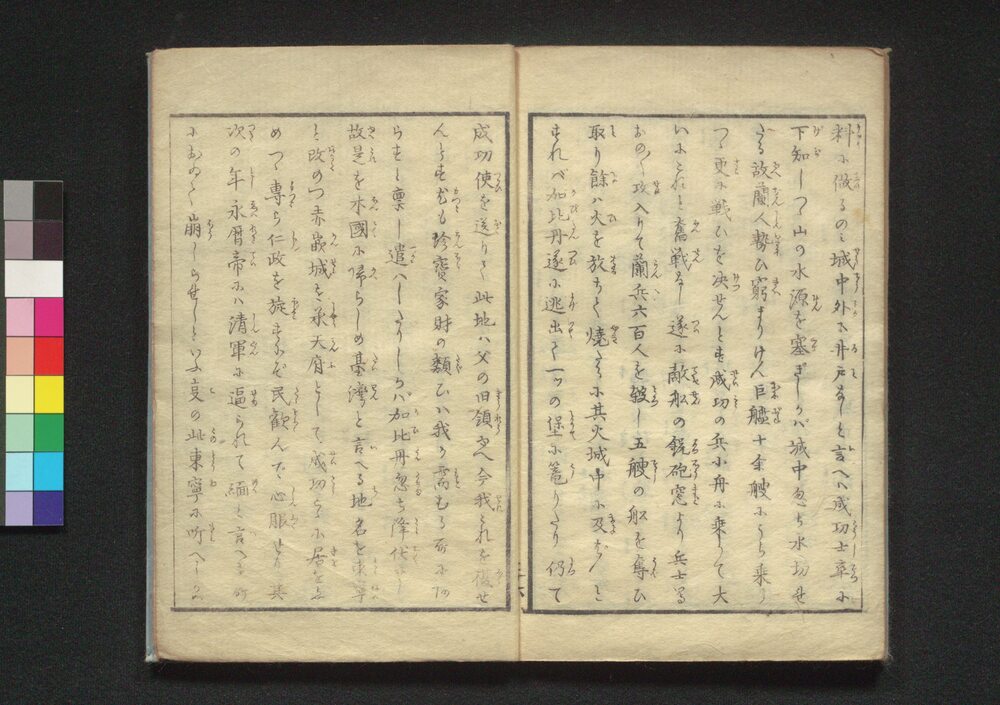 料に做るのミ城中外に井戸なしと言へバ成功士卒に
下知しつゝ山の水源を塞ぎしかバ城中忽ち水切せ
ざる故蘭人勢ひ窮まりけん巨艦十余艘にうち乗り
つゝ更に戦ひを决せんとす成功の兵小舟に乗りて大
いにこれと奮戦なし遂に敵船の銃砲窓より兵士等
おのく攻入りて蘭兵六百人を殺し五艘の船を奪ひ
取り餘ハ火を放ちて焼さるに其火城中に及びしと
それバ加比丹遂に逃出て一ツの堡に篭りたり仍て
成功使を送りて此地ハ父の旧領ゆへ今我これを復せ
んとす尤も珍寶家財の類ひハ我が需むる所にあ
らずと稟し遣ハしたりしかバ加比丹忽ち降伏なし
故是を本國に帰らしめ基湾と言へる地名を東寧
と改めつ赤嵌城を承天府として成功こゝに居を占
めつゝ専ら仁政を施すほどに民歓んで心服せり其
次の年永暦帝にハ清軍に逼られて緬と言へる所
におゐて崩しらせしといふ㕝の此東寧に听へしかバ